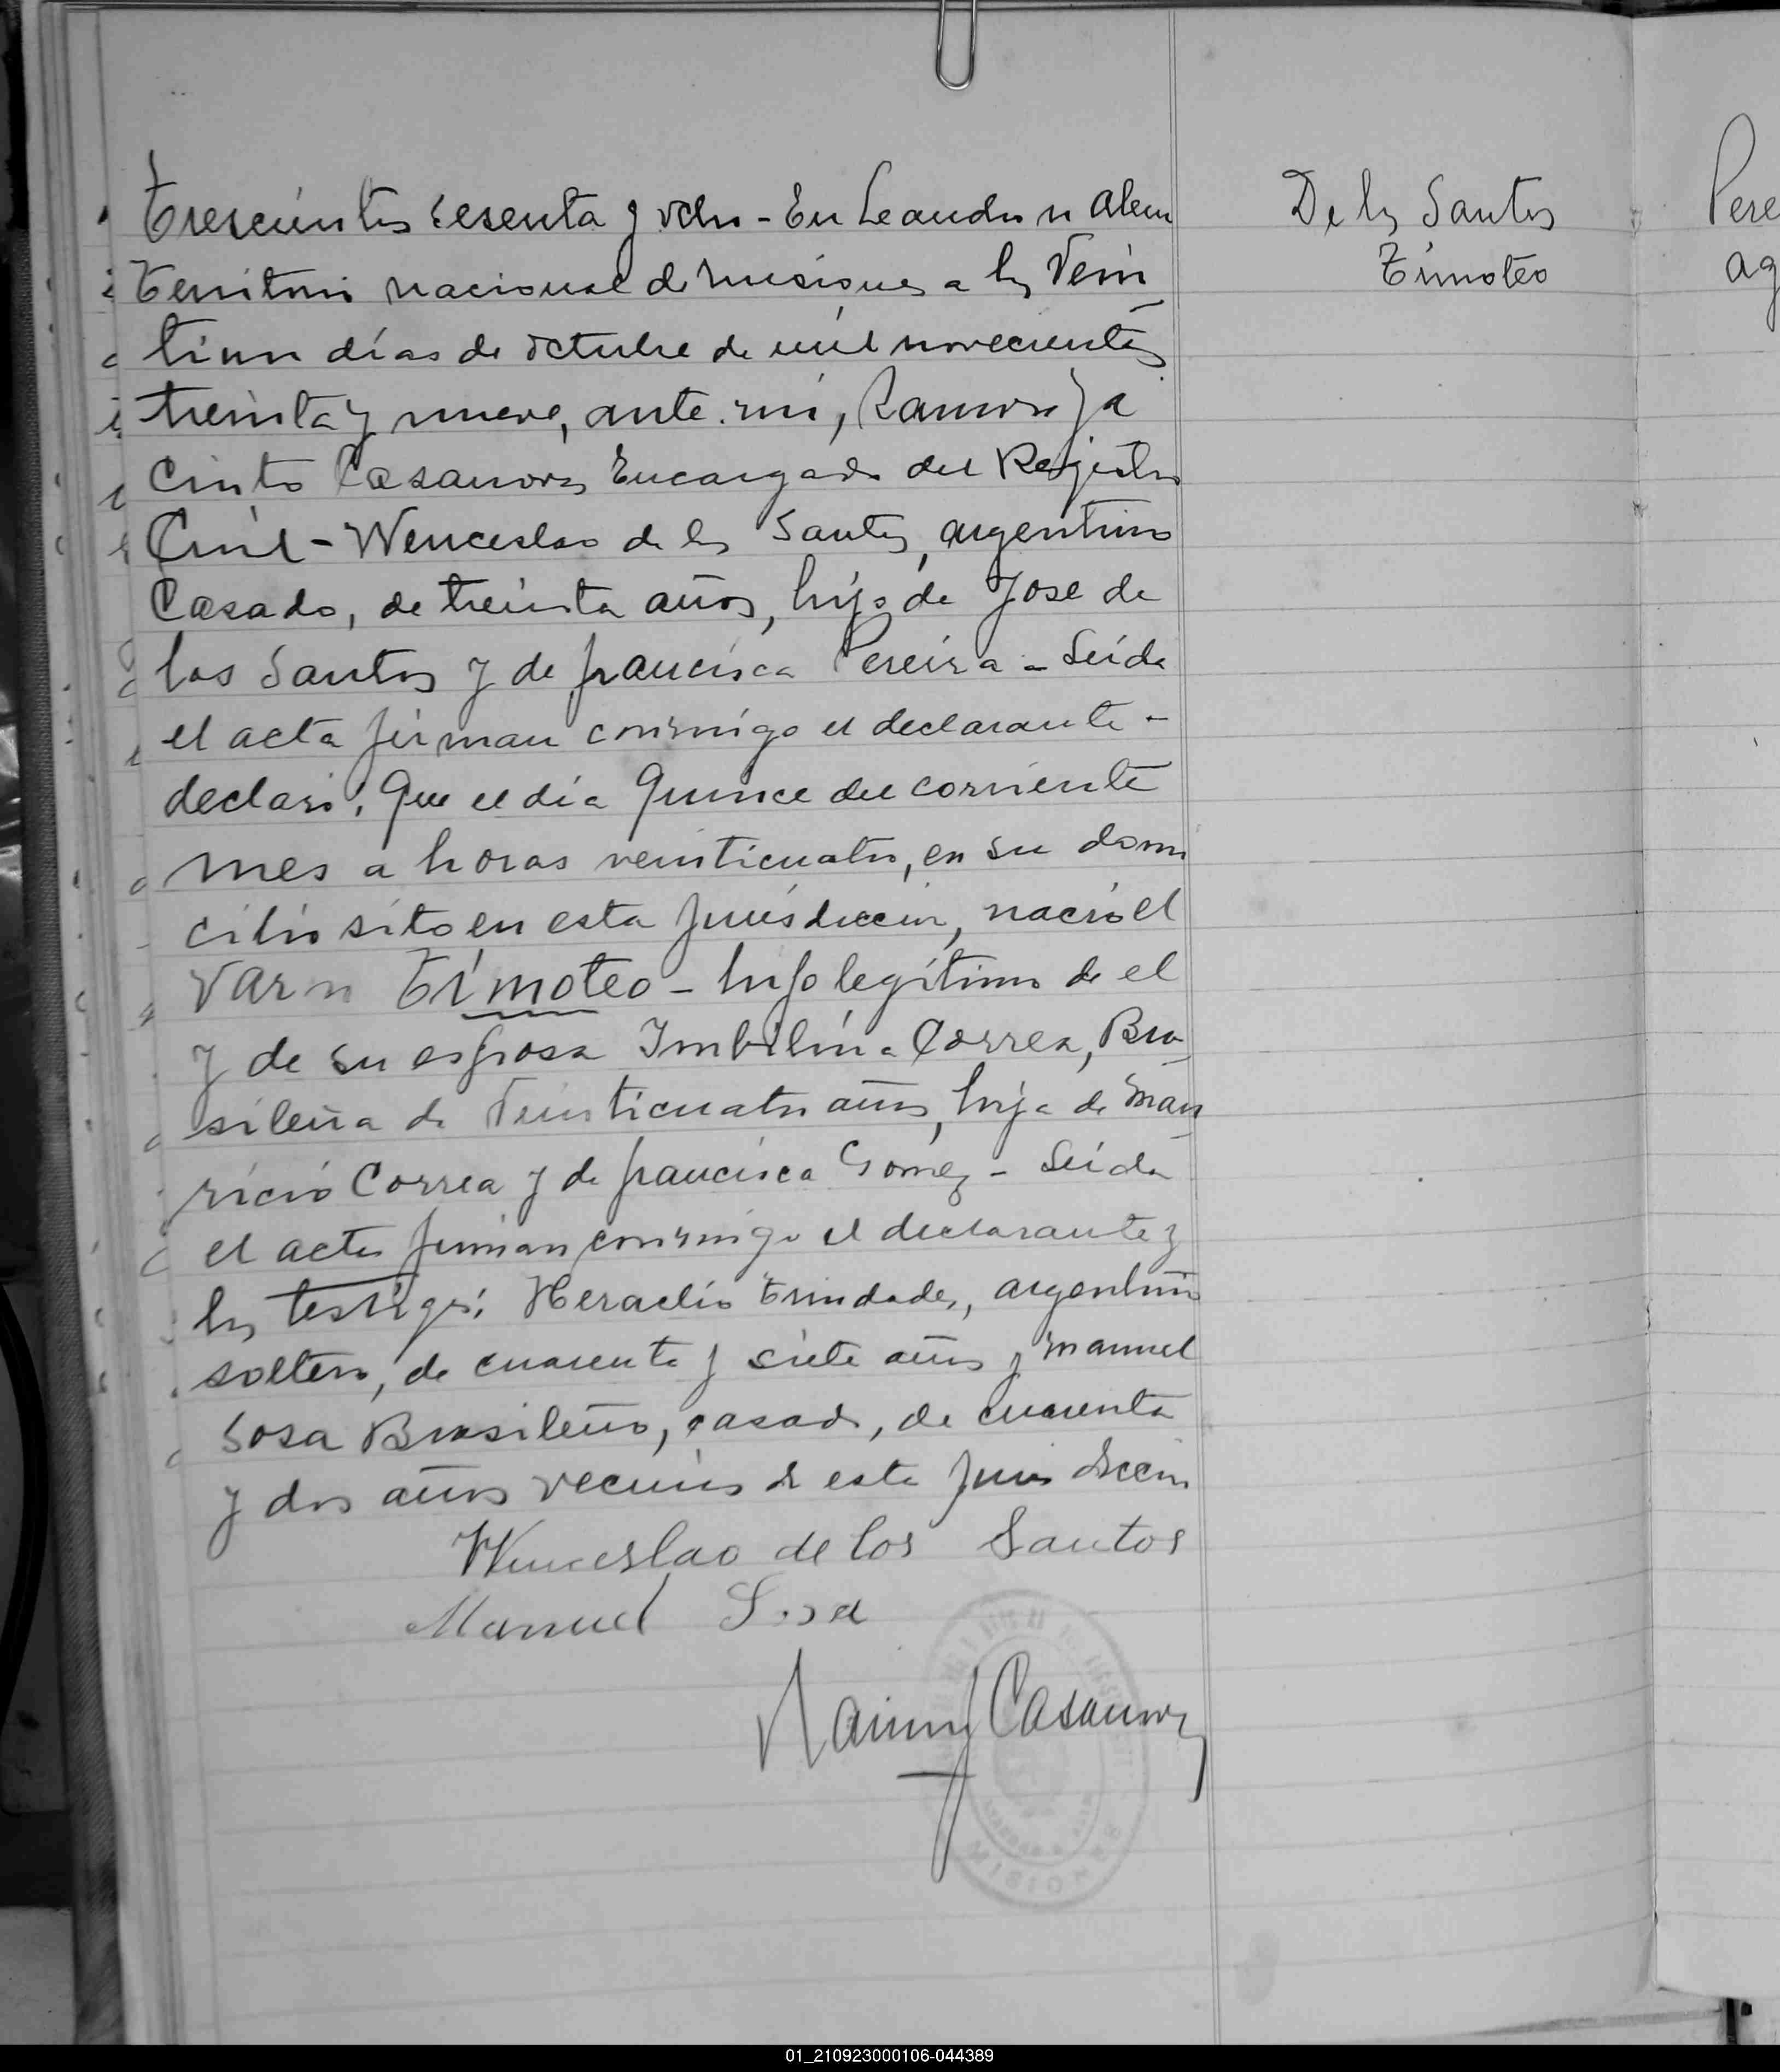 Trescientos sesenta y ocho - En Leandro n Alem
Territorio nacional de misiones a los Vein
tiun días de octubre de mil novecientos
treinta y nueve, ante mi, Ramon Ja
cinto Casanova Encargado del Registro
Civil - Wenceslao de los Santos, argentino
Casado, de treinta años, hijo de Jose de
los Santos y de francisca Pereira - Leida
el acta firman conmigo el declarante -
declaró: Que el día Quince del corriente
mes a horas veinticuatro, en su domi
cilio sito en esta Jurisdiccion, nació el
Varon Timoteo - hijo legítimo de el
y de su esposa Imbilina Correa, Bra
sileña de Veinticuatro años, hija de Mau
ricio Correa y de francisca Gomez - Leida
el acta firman conmigo el declarante y
los testigos: Heraclio Trindade, argentino
soltero, de cuarenta y siete años y manuel
Sosa Brasileño, casado, de cuarenta
y dos años vecinos de esta Jurisdiccion
Wenceslao de los Santos
Manuel Sosa
Ramon J Casanova
De los Santos
Timoteo
Pere
ag
01_210923000106-044389